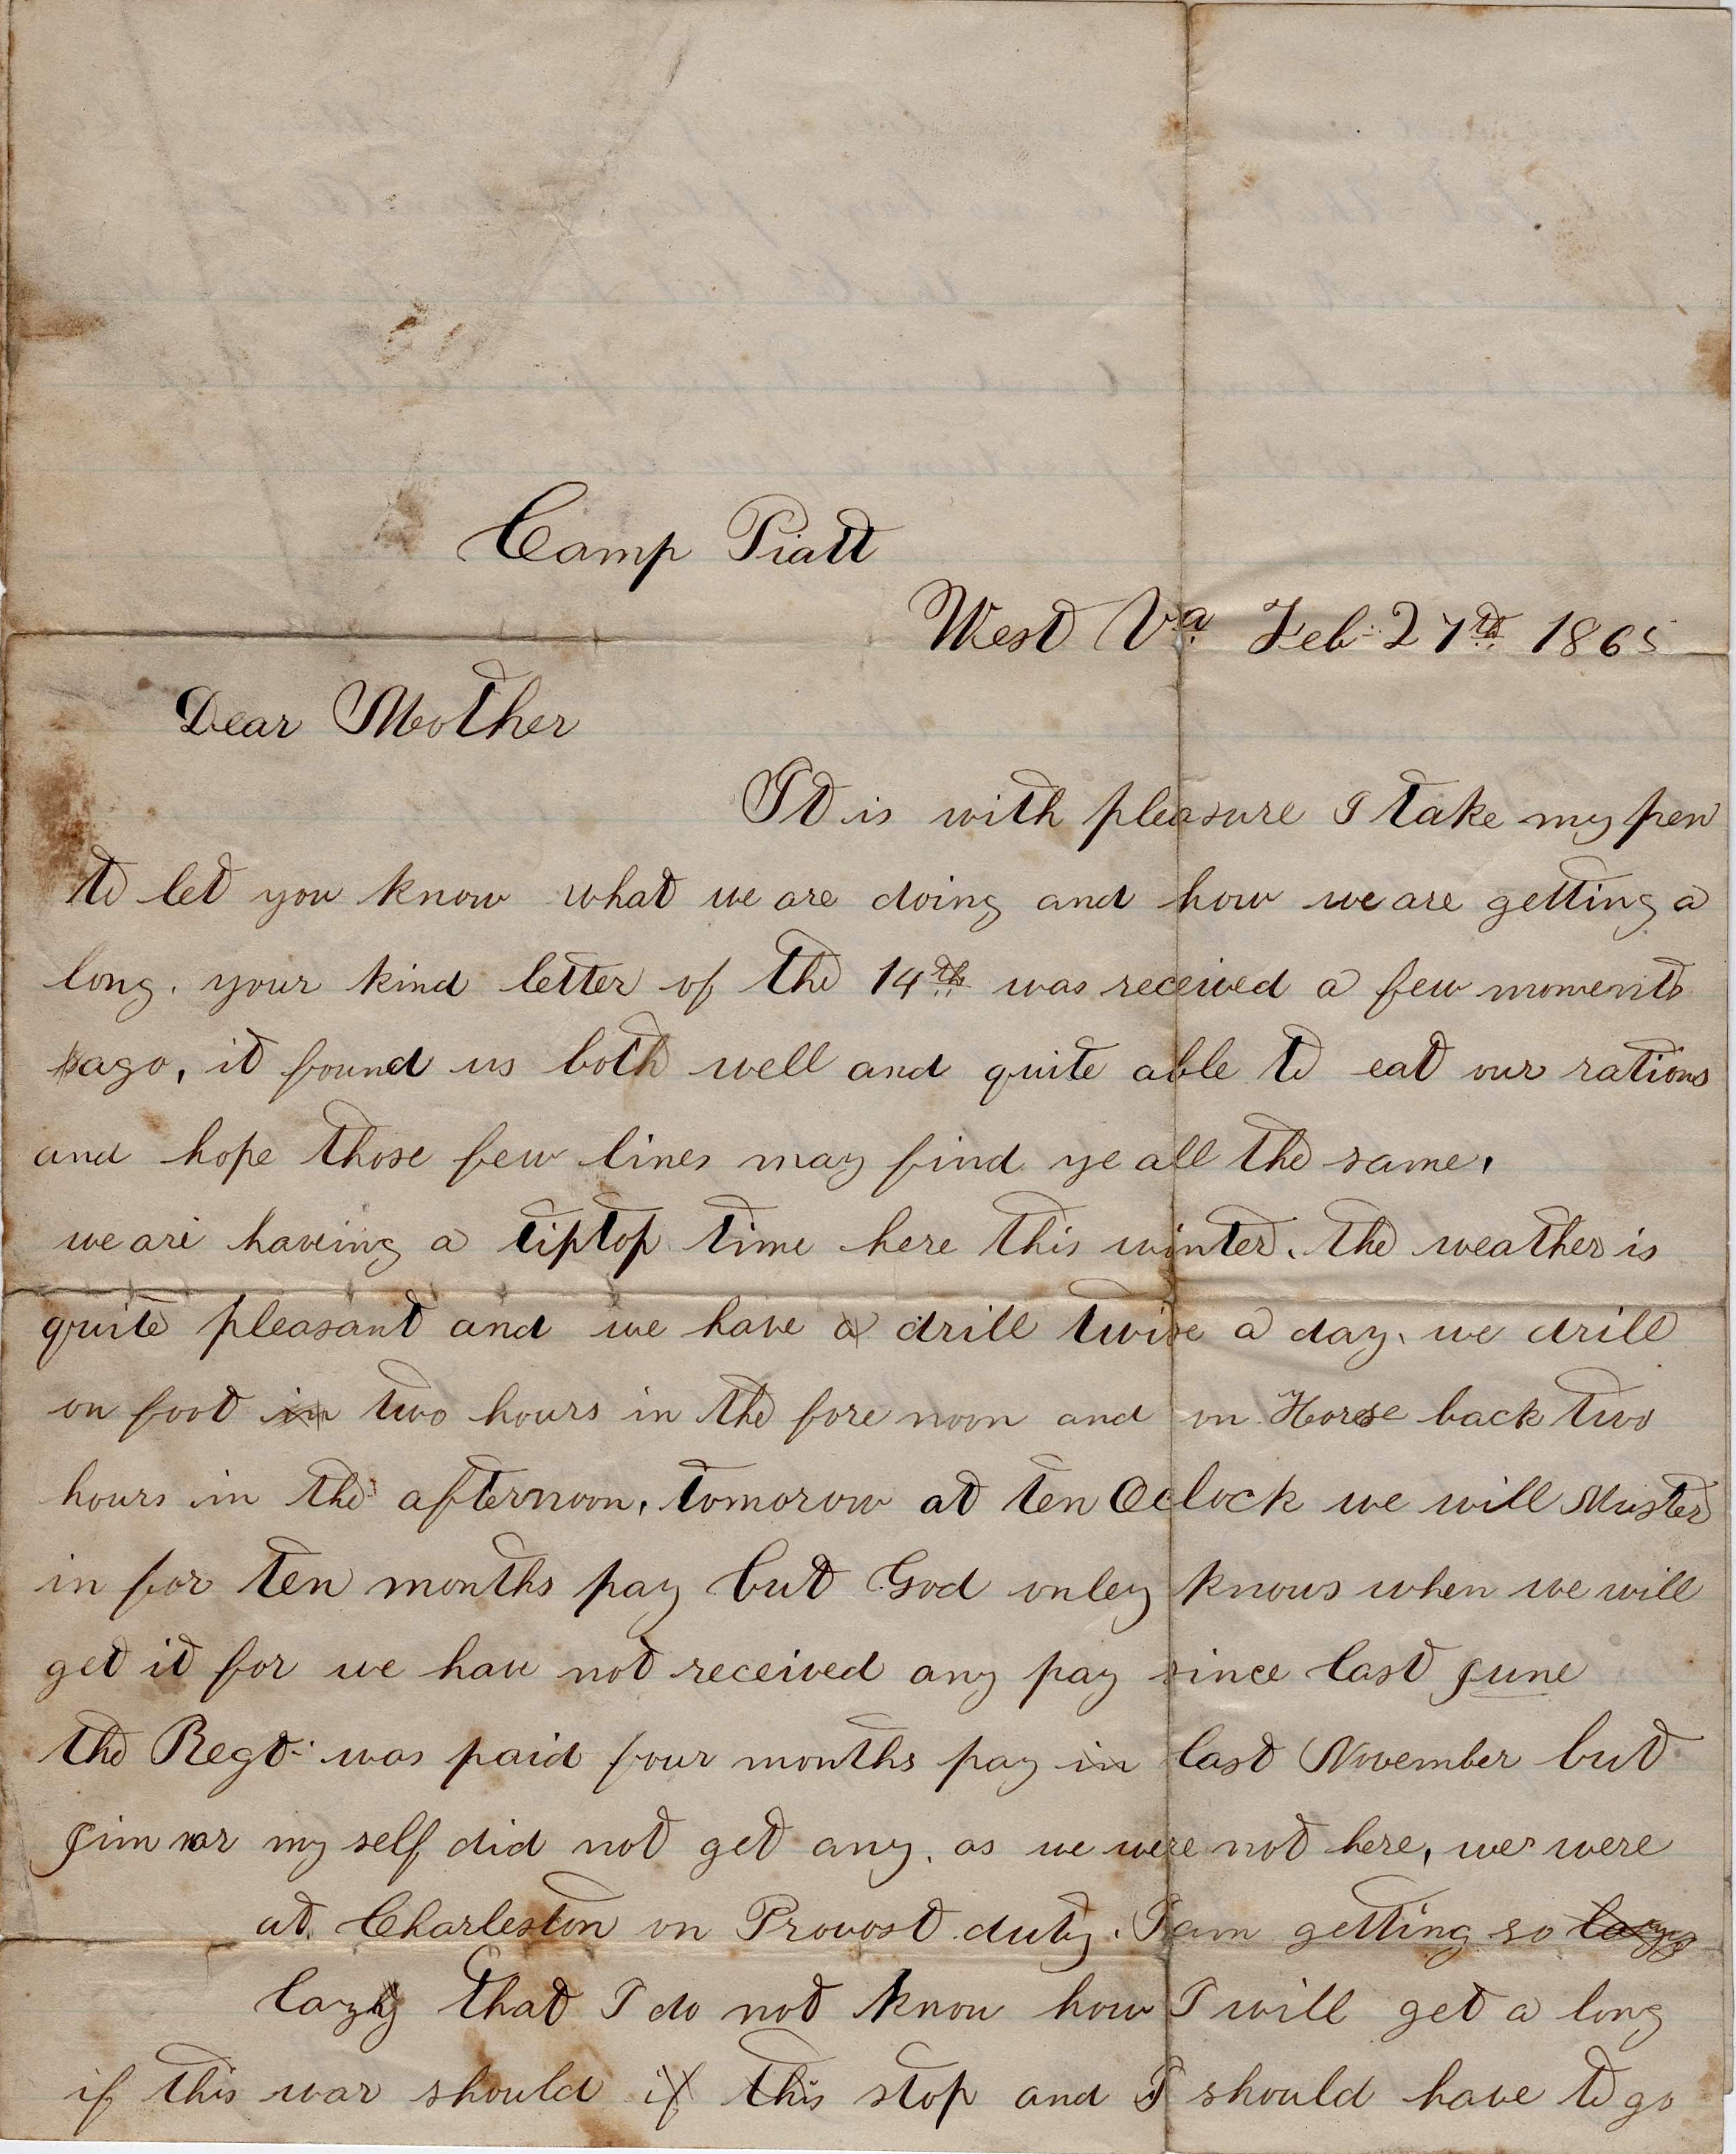 Camp Piatt
West Va Feb 27th 1865
Dear Mother
It is with pleasure I take my pen
to let you know what we are doing and how we are getting a
long. your kind letter of the 14th was received a few moments
ago, it found us both well and quite able to eat our rations
and hope those few lines may find ye all the same,
we are haveing a tiptop time here this winter. the weather is
quite pleasant and we have a drill twise a day. we drill
on foot in two hours in the fore noon and on Horse back two
hours in the afternoon, tomorow at ten Oclock we will Muster
in for ten months pay but God onley knows when we will
get it for we have not received any pay since last june
the Regt. was paid four months pay in last November but
jim nor my self did not get any. as we were not here, we were
at Charleston on Provost duty. I am getting so lazy
lazy that I do not know how I will get a long
if this war should if this stop and I should have to go